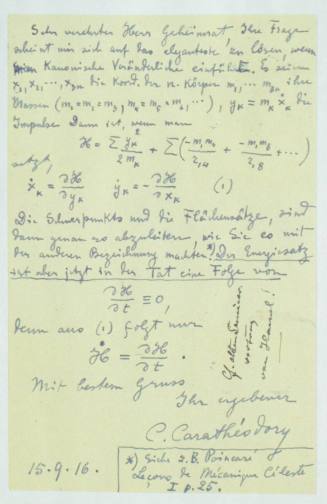 Sehr verehrter Herr Geheimrat, Ihre Frage
scheint mir sich auf das eleganteste zu lösen, wenn
man Kanonische Veränderliche einführt. Es seien
x₁, x₂, ..., x₃ₙ die Koord. der n. Körper m₁, ... m₃ₙ ihre
Massen (m₁ = m₂ = m₃, m₄ = m₅ = m₆, ...), yₖ = mₖ ẋₖ die
Impulse. Dann ist, wenn man
H = Σ yₖ²/2mₖ + Σ(-m₁m₄/r₁,₄ + -m₁m₈/r₁,₈ + ...)
setzt,
ẋₖ = ∂H/∂yₖ ẏₖ = -∂H/∂xₖ (1)
Die Schwerpunkts und die Flächensätze, sind
dann genau so abzuleiten, wie Sie es mit
der anderen Bezeichnung machten.*) Der Energiesatz
ist aber jetzt in der Tat eine Folge von
∂H/∂t ≡ 0,
denn aus (1) folgt nur
Ḣ = ∂H/∂t.
Mit bestem Gruss
Ihr ergebener
C. Carathéodory
15.9.16.
*) Siehe z.B. Poincaré
Leçons de Mécanique Céleste
I p. 25.
von Hamel!